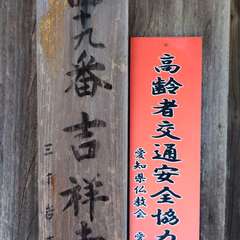 高齢者交通安全協力
愛知県仏教会
十九番吉祥寺
三十